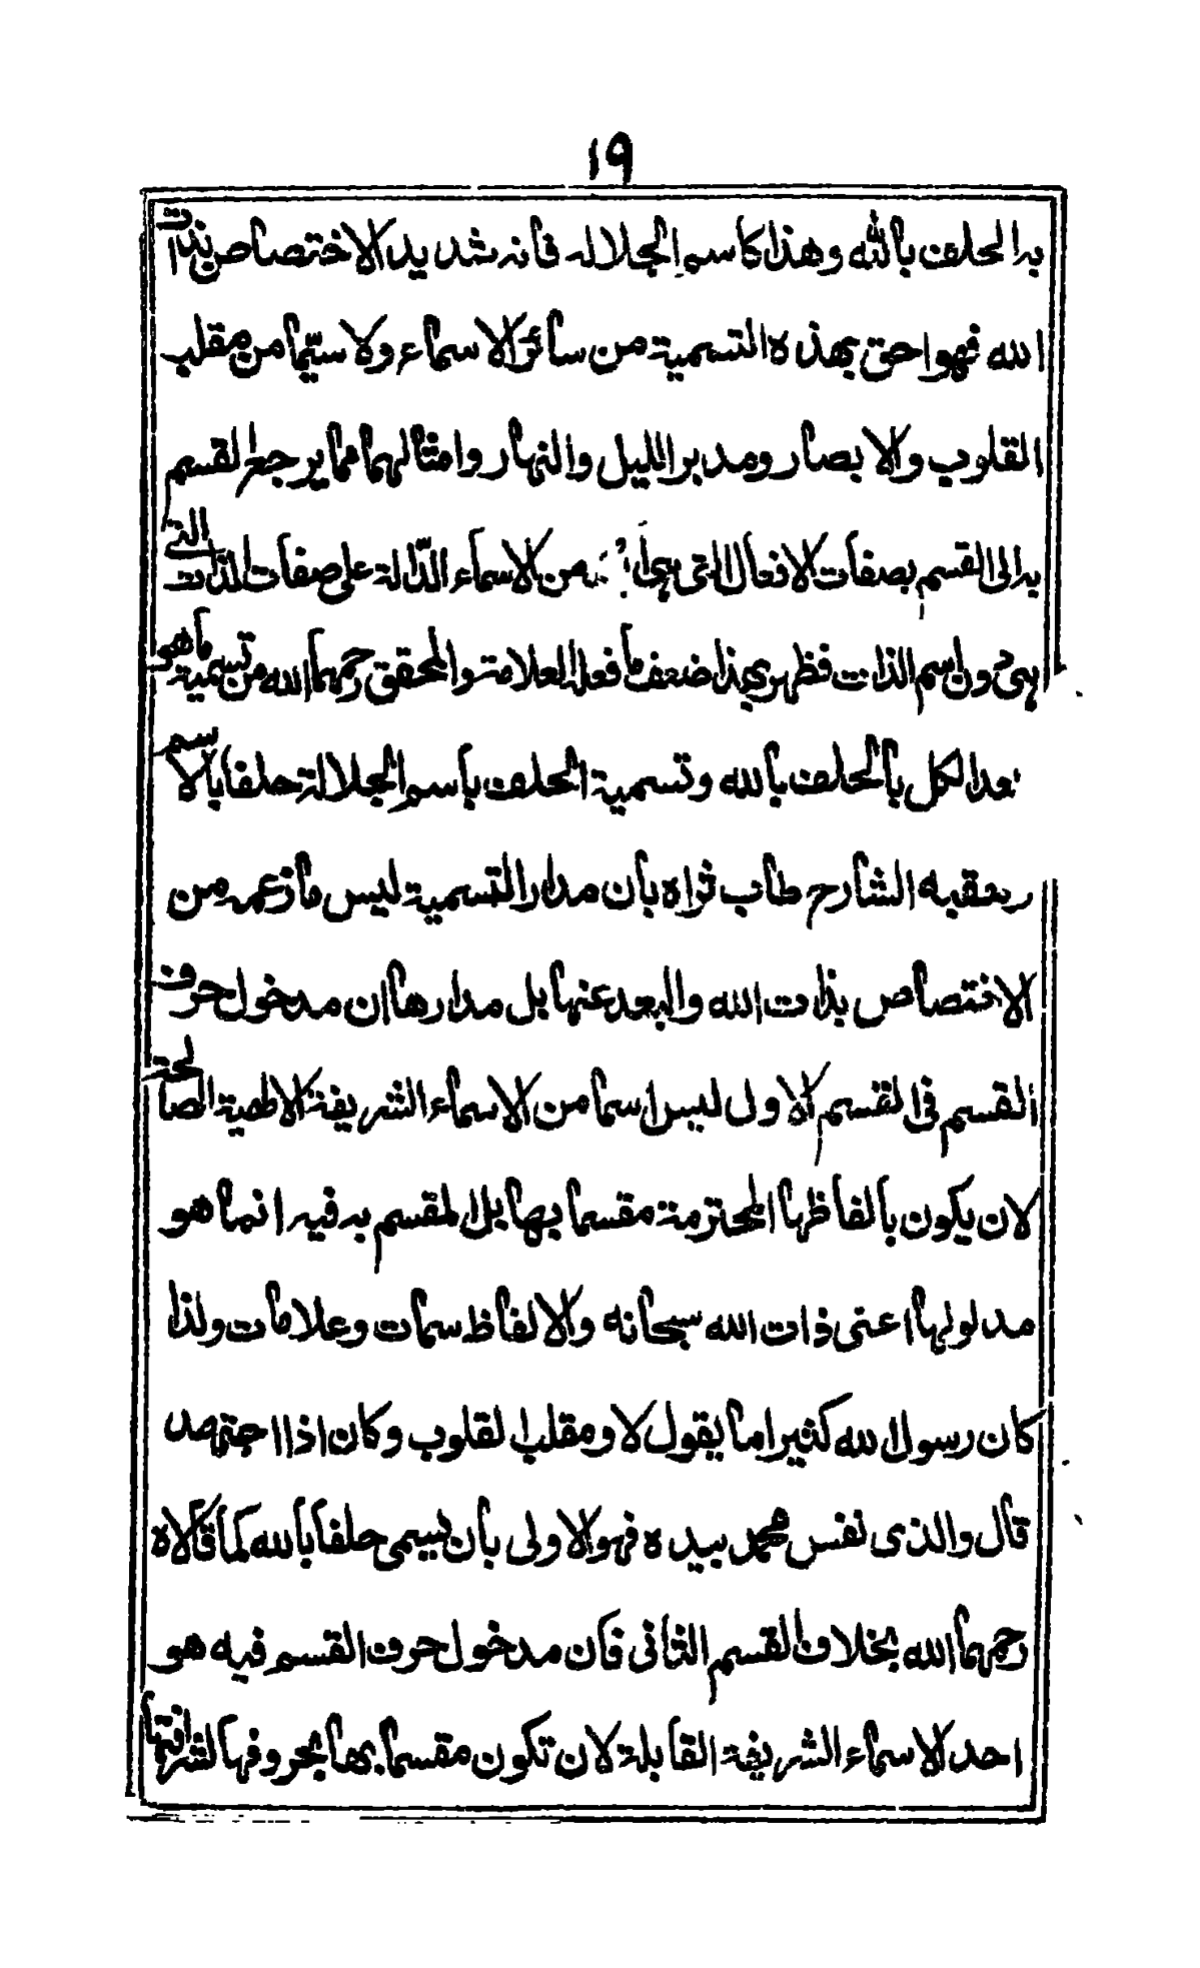 ١٩
به الحلف بالله وهذا كاسم الجلاله فانه شديد الاختصاص بذات
الله فهو احق بهذه التسمية من سائر الاسماء ولا سيّما من مقلب
القلوب والابصار ومدبر الليل والنهار وامثالهما مما يرجع القسم
به الى القسم بصفات الافعال التى هى من الاسماء الدّالة على صفات الذات التى
هى دون اسم الذات فظهر بهذا ضعف ما فعله العلامة والمحقق رحمهما الله من تسمية ما هو
بعد الكل بالحلف بالله وتسمية الحلف باسم الجلالة حلفا بالاسم
وتعقبه الشارح طاب ثراه بان مدار التسمية ليس ما زعمه من
الاختصاص بذات الله والبعد عنها بل مدارها ان مدخول حرف
القسم فى القسم الاول ليس اسما من الاسماء الشريفة الالهية الصالحة
لان يكون بالفاظها المحترمة مقسما بها بل المقسم به فيه انما هو
مدلولها اعنى ذات الله سبحانه والالفاظ سمات وعلامات ولذا
كان رسول الله كثيرا ما يقول لا ومقلب القلوب وكان اذا اجتهد
قال والذى نفس محمد بيده فهو الاولى بان يسمى حلفا بالله كما قالاه
رحمهما الله بخلاف القسم الثانى فان مدخول حرف القسم فيه هو
احد الاسماء الشريفة القابلة لان تكون مقسما بها بحروفها لشرافتها